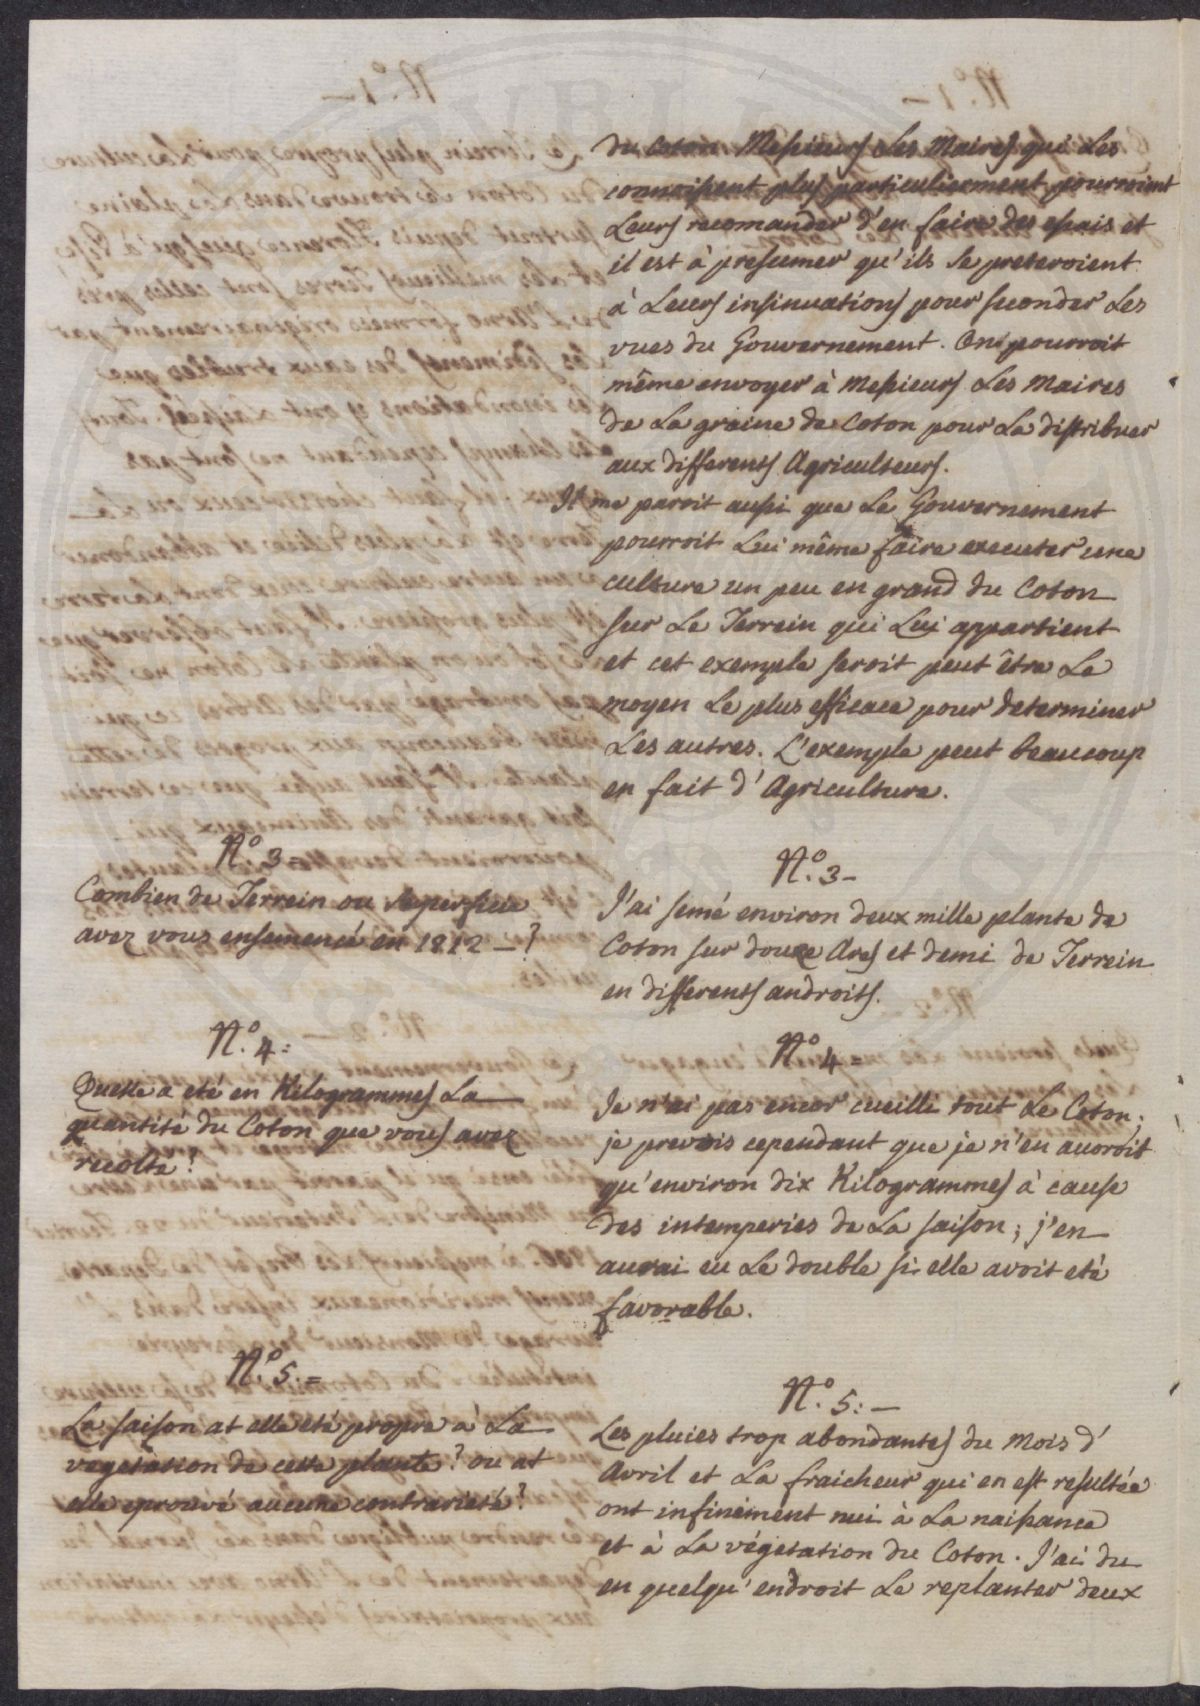 du Coton Messieurs Les Maires qui Les
connoissent plus particulierement pourroient
Leurs recomander d'en faire des essais et
il est à presumer qu'ils se preteroient
à Leurs insinuations pour seconder Les
vues du Gouvernement. On pourroit
même envoyer à Messieurs Les Maires
de La graine de Coton pour La distribuer
aux differents Agriculteurs.
Il me paroit aussi que Le Gouvernement
pourroit Lui même faire executer une
culture un peu en grand du Coton
sur Le Terrein qui Lui appartient
et cet exemple seroit peut être Le
moyen Le plus efficace pour determiner
Les autres. L'exemple peut beaucoup
en fait d'Agriculture.
N.° 3 =
Combien de Terrein ou superficie
avez vous ensemencé en 1812 — ?
N.° 3 -
J'ai semé environ deux mille plante de
Coton sur douze Ares et demi de Terrein
en differents androits.
N.° 4 =
Quelle a eté en Kilogrammes La
quantité du Coton que vous avez
recolté ?
N.° 4 =
Je n'ai pas encor cueilli tout Le Coton,
je prevois cependant que je n'en auroit
qu'environ dix Kilogrammes à cause
des intemperies de La saison ; j'en
aurai eu Le double si elle avoit eté
favorable.
N.° 5. =
La saison at elle eté propre à La
vegetation de cette plante ? ou at
elle eprouvé aucune contrarieté ?
N.° 5 : —
Les pluies trop abondantes du Mois d'
Avril et La fraicheur qui en est resultée
ont infiniment nui à La naissance
et à La végetation du Coton. J'ai du
en quelqu'endroit Le replanter deux